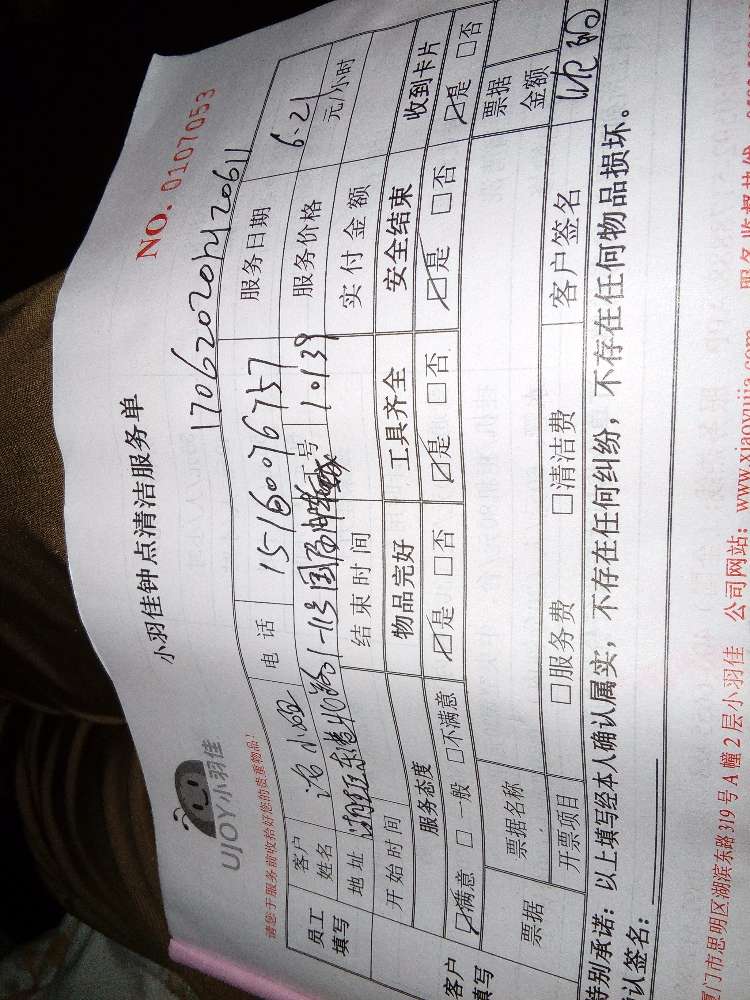 小羽佳钟点清洁服务单
NO. 0107053
UJOY小羽佳
请您于服务前收拾好您的贵重物品!
170620201420611
员工填写 客户姓名 小姐 电话 15160076757 服务日期 6.21
地址 工号 1.139 服务价格 元/小时
开始时间 结束时间 实付金额
客户填写 服务态度 物品完好 工具齐全 安全结束 收到卡片
☑满意 □一般 □不满意 ☑是 □否 ☑是 □否 ☑是 □否 ☑是 □否
票据 票据名称 票据金额
开票项目 □服务费 □清洁费 客户签名
特别承诺：以上填写经本人确认属实，不存在任何纠纷，不存在任何物品损坏。
认签名：
厦门市思明区湖滨东路319号A幢2层小羽佳 公司网站：www.xiaoyujia.com 服务监督热线